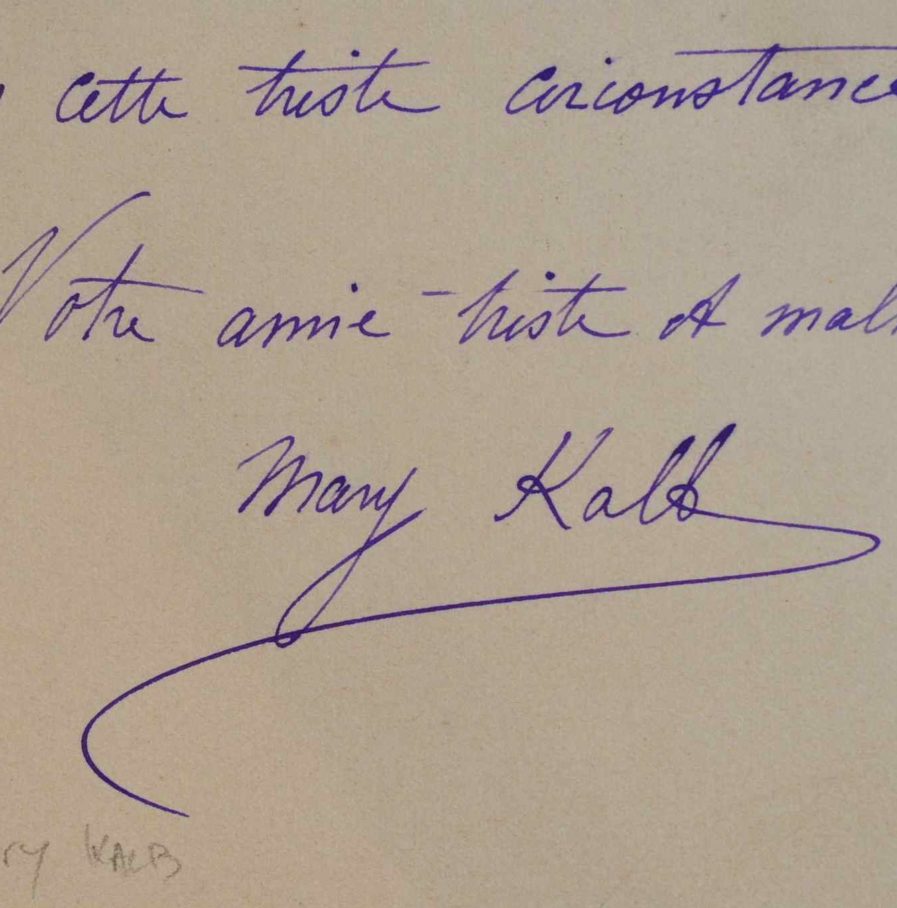 cette triste circonstance
Votre amie - triste et mal
Mary Kalb
ry KALB